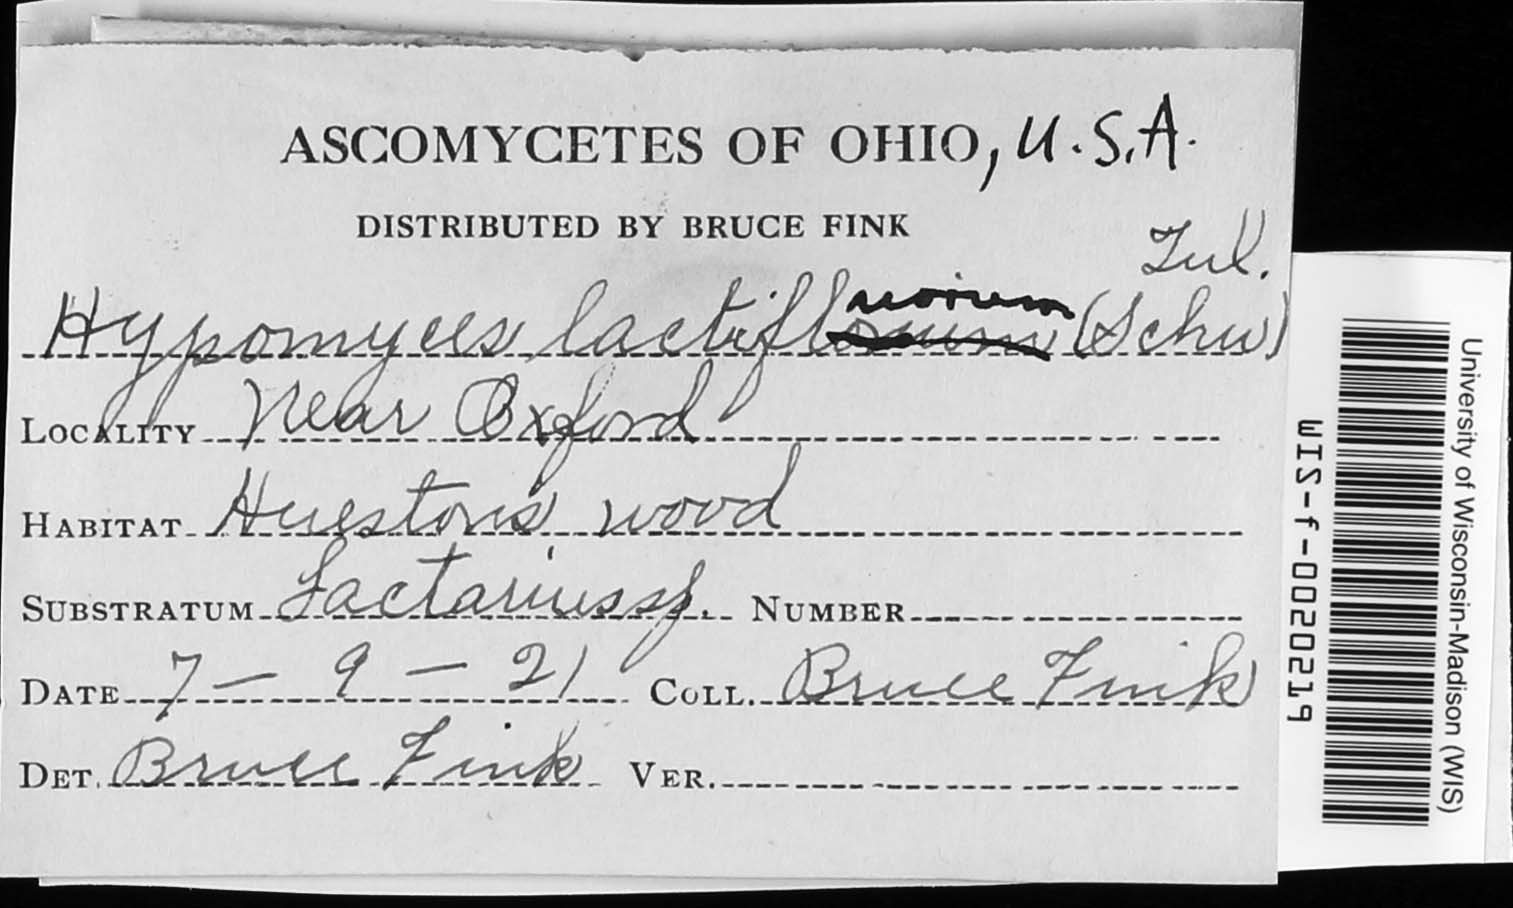 ASCOMYCETES OF OHIO, U.S.A.
DISTRIBUTED BY BRUCE FINK
Hypomyces lactifluorum (Schw) Tul.
LOCALITY Near Oxford
HABITAT Huestons wood
SUBSTRATUM Lactarius sp. NUMBER
DATE 7 - 9 - 21 COLL. Bruce Fink
DET. Bruce Fink VER.
WIS-f-0020219
University of Wisconsin-Madison (WIS)